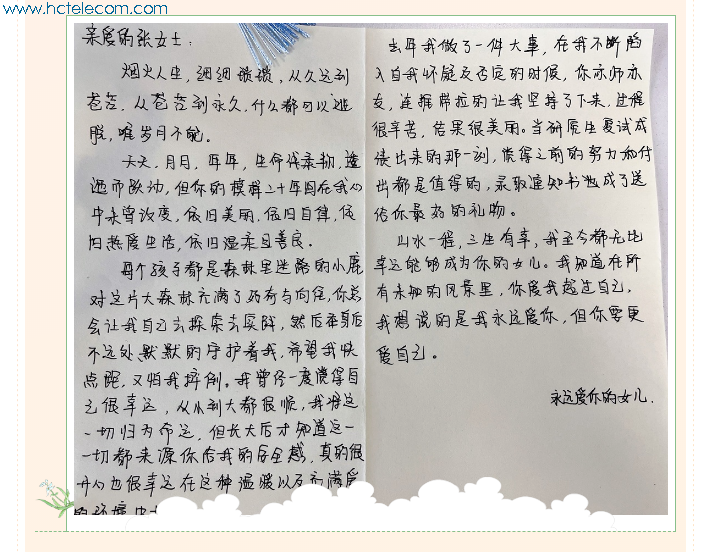 www.hctelecom.com
亲爱的张女士：
烟火人生，细细琐琐，从久远到
苍苍，从苍苍到永久，什么都可以逃
脱，唯岁月不能。
天天，月月，年年，生命线柔韧，
而跃动，但你的模样二十年间在我心
中未曾改变，依旧美丽，依旧自律，依
旧热爱生活，依旧温柔且善良。
每个孩子都是森林里迷路的小鹿
对这片大森林充满了好奇与向往，你总
会让我自己去探索去实践，然后在身后
不远处默默的守护着我，希望我快
点跑，又怕我摔倒。我曾经一度觉得自
己很幸运，从小到大都很顺，我将这
一切归为命运，但长大后才知道这一
一切都来源你给我的安全感，真的很
开心也很幸运在这种温暖以及充满爱
的环境中
去年我做了一件大事，在我不断陷
入自我怀疑及否定的时候，你亦师亦
友，连拖带拉的让我坚持了下来，过程
很辛苦，结果很美丽。当研究生复试成
绩出来的那一刻，觉得之前的努力和付
出都是值得的，录取通知书也成了送
给你最好的礼物。
山水一程，三生有幸，我至今都无比
幸运能够成为你的女儿。我知道在所
有未知的风景里，你爱我越过自己，
我想说的是我永远爱你，但你要更
爱自己。
永远爱你的女儿.